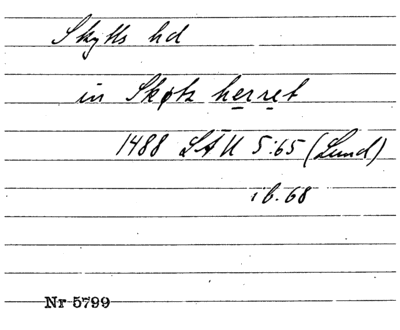 Skytts hd
in Skøtz herret
1488 LÄU 5:65 (Lund)
ib. 68
Nr 5799